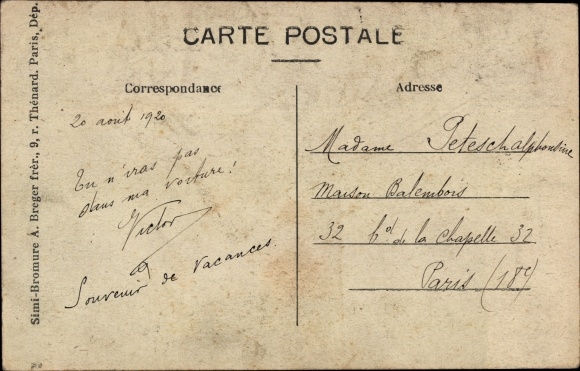 CARTE POSTALE
Correspondance
20 août 1920
Tu n'iras pas
dans ma voiture!
Victor
Souvenir de vacances.
Adresse
Madame Peteschalphonsine
Maison Balembois
32 bd. de la chapelle 32
Paris (18e)
Simi-Bromure A. Breger frèr., 9, r. Thénard. Paris, Dép.